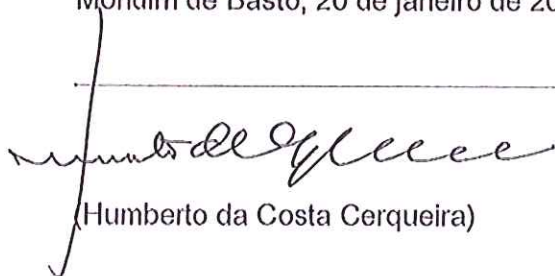 Mondim de Basto, 20 de janeiro de 20
(Humberto da Costa Cerqueira)